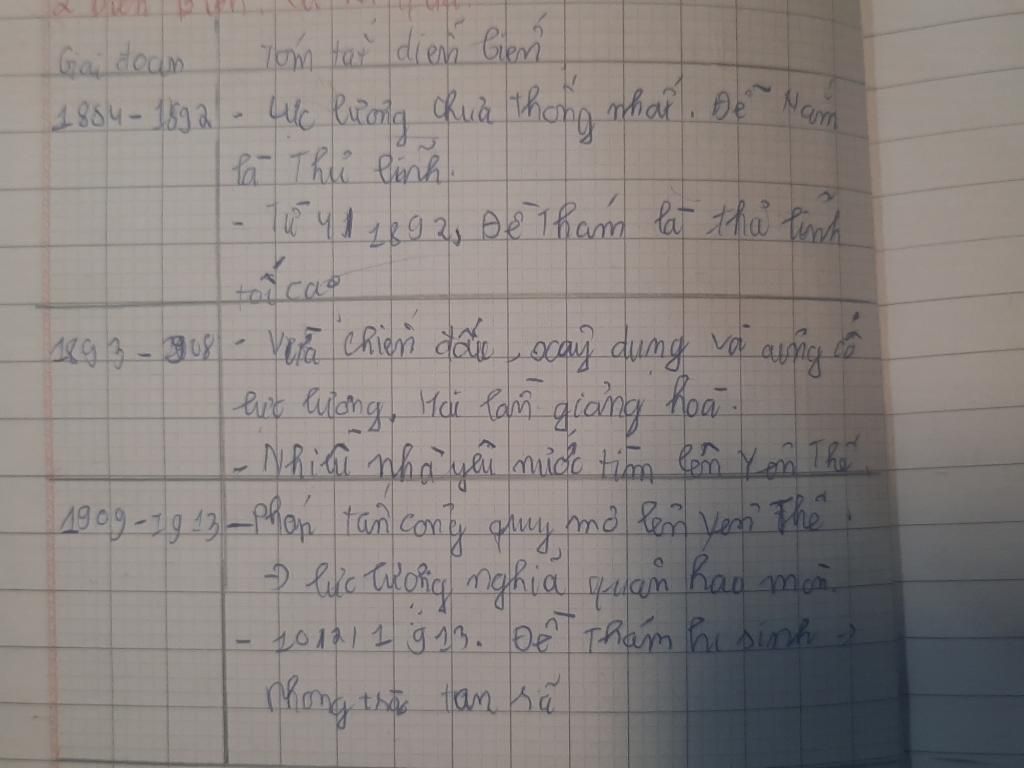 Giai đoạn Tóm tắt diễn biến
1884-1892 - Lực lượng chưa thống nhất. Đề Nắm
là Thủ lĩnh.
- Từ 4/1892, Đề Thám là thủ lĩnh
tối cao
1893-1908 - Vừa chiến đấu, xây dựng và củng cố
lực lượng. Hai lần giảng hoà.
- Nhiều nhà yêu nước tìm lên Yên Thế.
1909-1913 - Pháp tấn công quy mô lên Yên Thế.
→ lực lượng nghĩa quân hao mòn
- 10/2/1913. Đề Thám hi sinh →
Phong trào tan rã